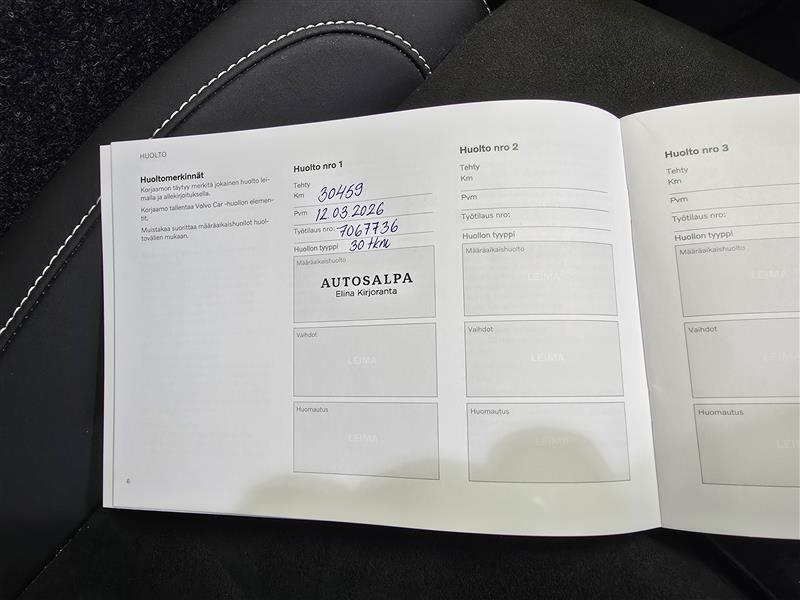 HUOLTO
Huoltomerkinnät
Korjaamon täytyy merkitä jokainen huolto lei-
malla ja allekirjoituksella.
Korjaamo tallentaa Volvo Car -huollon elemen-
tit.
Muistakaa suorittaa määräaikaishuollot huol-
tovälien mukaan.
6
Huolto nro 1
Tehty
Km 30469
Pvm 12.03.2026
Työtilaus nro: 7067736
Huollon tyyppi 30 tkm
Määräaikaishuolto
AUTOSALPA
Elina Kirjoranta
Vaihdot
LEIMA
Huomautus
LEIMA
Huolto nro 2
Tehty
Km
Pvm
Työtilaus nro:
Huollon tyyppi
Määräaikaishuolto
LEIMA
Vaihdot
LEIMA
Huomautus
LEIMA
Huolto nro 3
Tehty
Km
Pvm
Työtilaus nro:
Huollon tyyppi
Määräaikaishuolto
Vaihdot
Huomautus